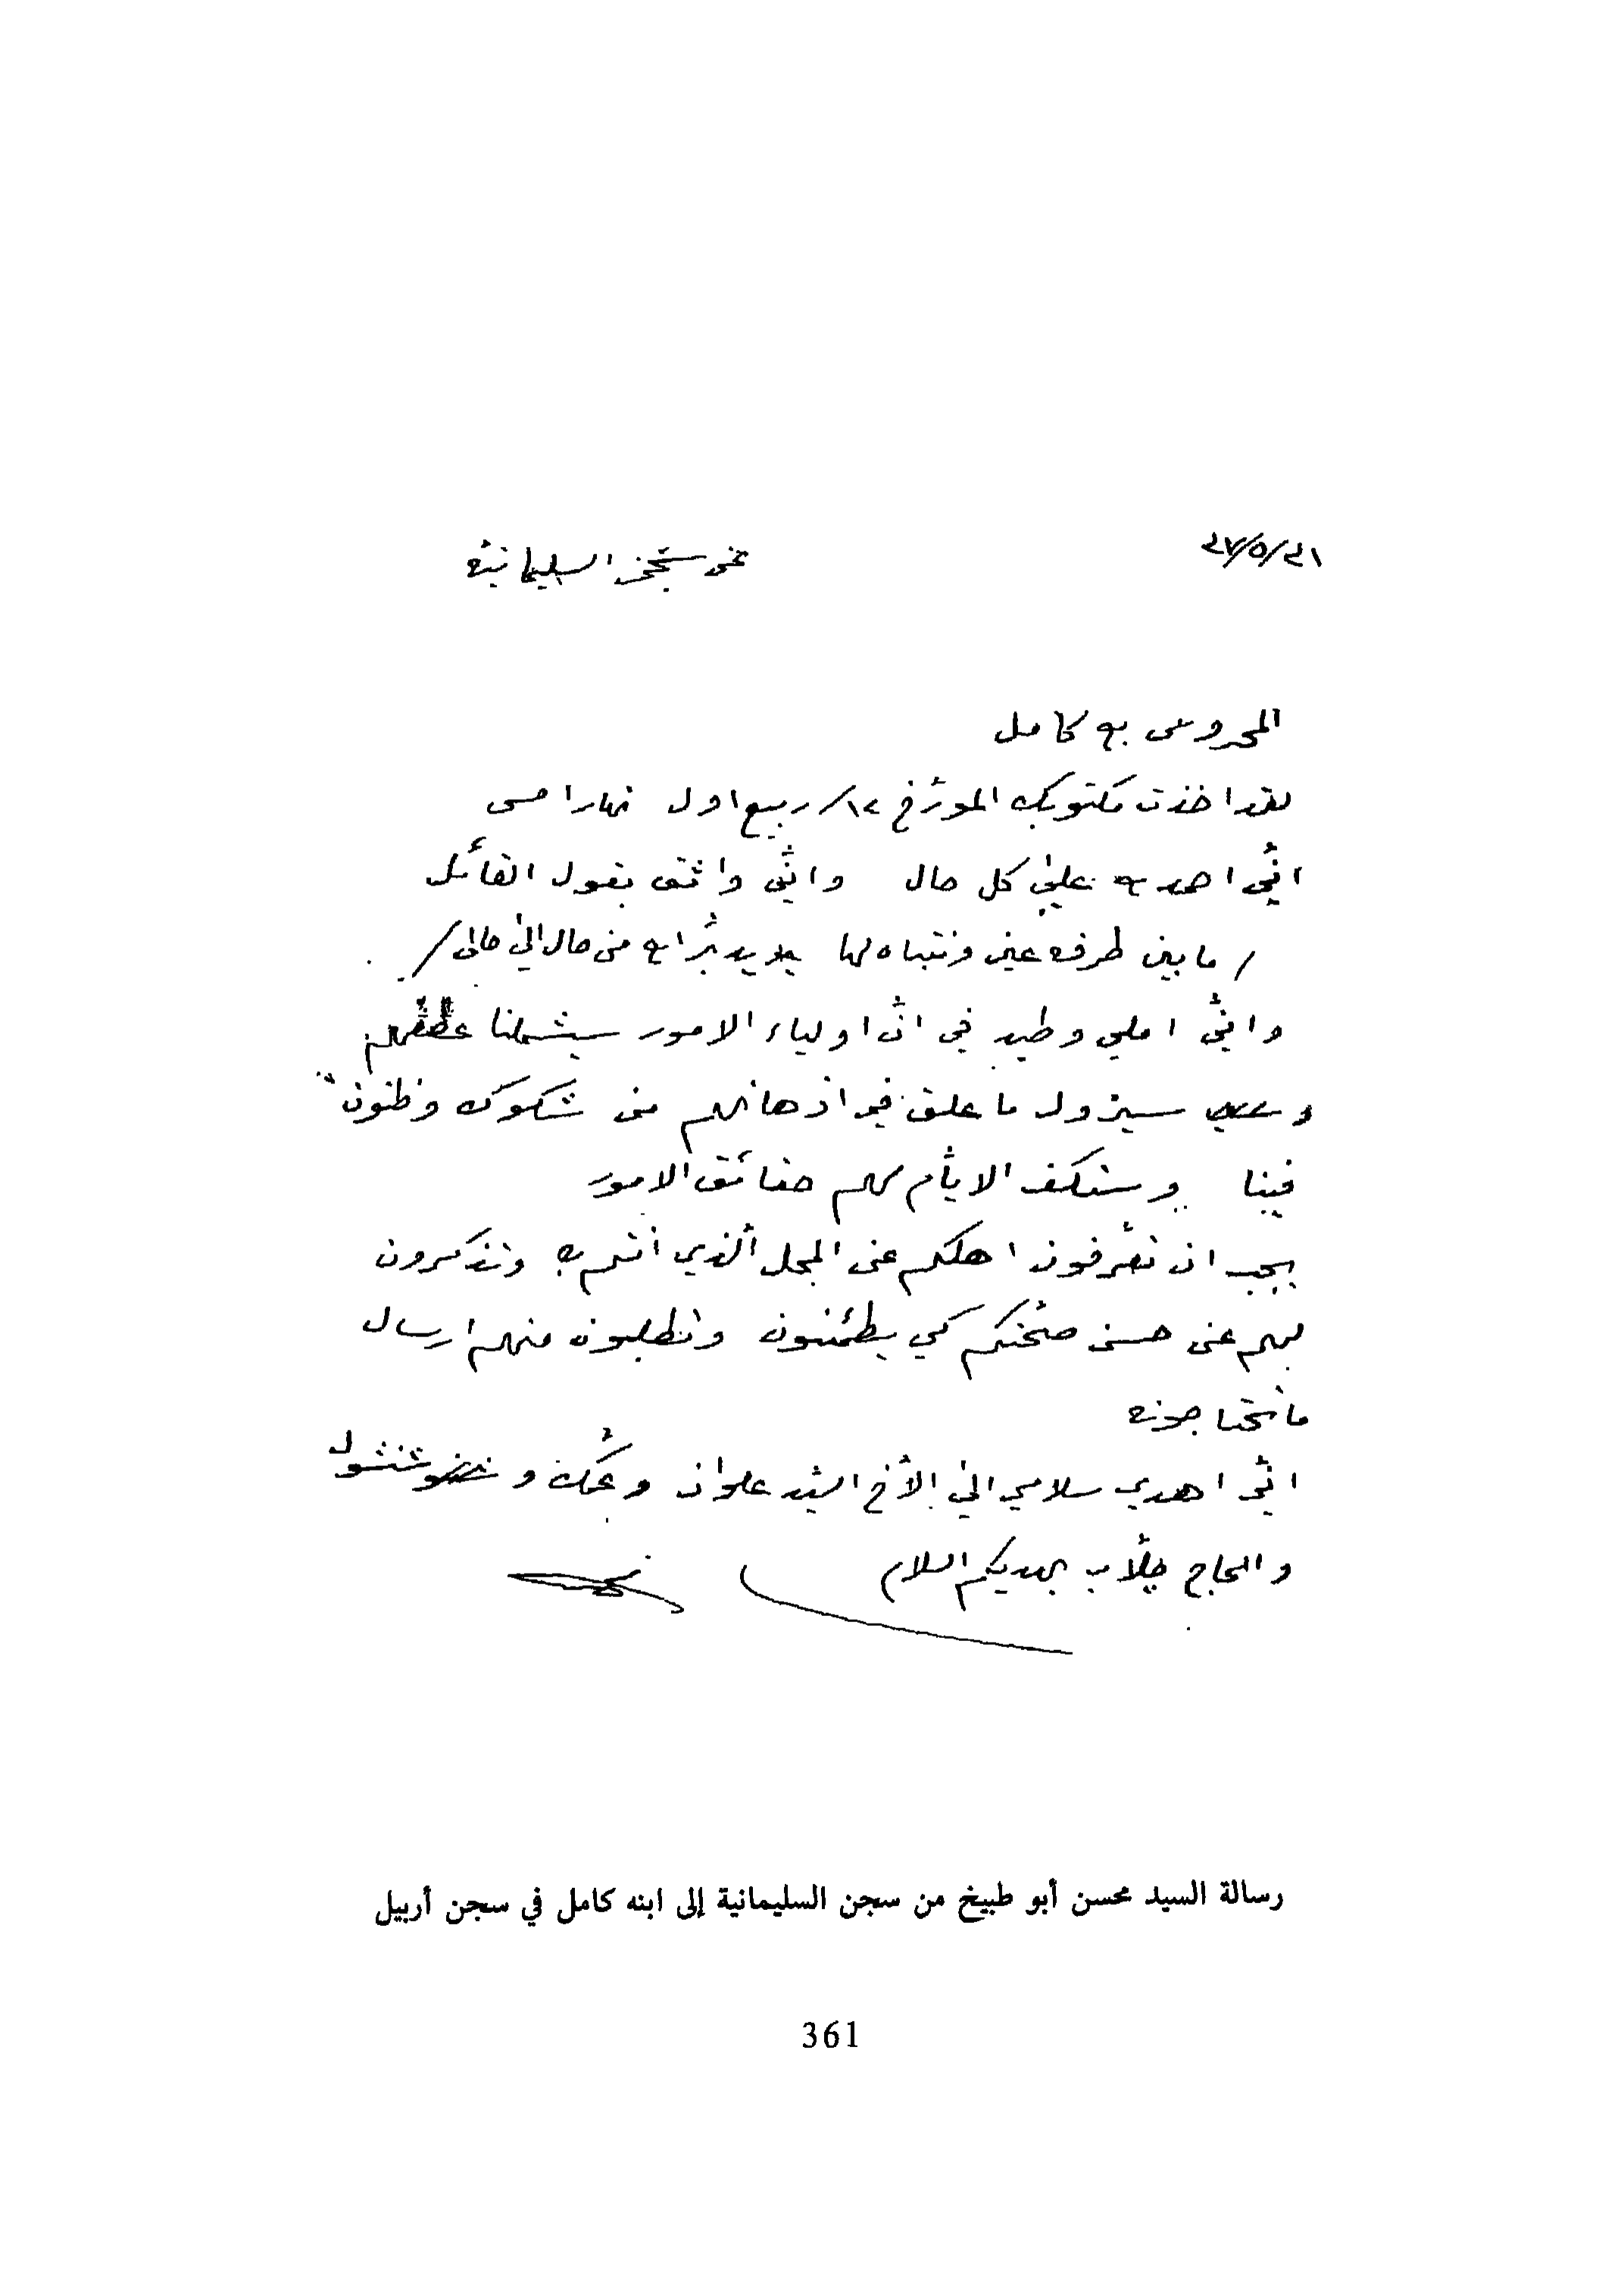 من سجن السليمانية
المحروس به كامل
لقد اخذت مكتوبك المورّخ ١٢/ ربيع اول نهار امس
انّي احمد الله على كل حال وانّي واثق بقول القائل
/ ما بين طرفة عين وانتباه لها يدبّر الله من حال الى حال /
وانّي املي وطيد في انّ اولياء الامور سيشملنا عطفهم
و سيزول ما علق في اذهانهم من شكوك وظنون
فينا وستكشف الايّام لهم حقائق الامور
يجب ان تعرّفون اهلكم عن المحل الّذي انتم به وتذكرون
لهم عن حسن صحّتكم كي يطمئنون وتطلبون منهم ارسال
ما تحتاجونه
انّي اهدي سلامي الى الأخ السيّد علوان و عمّك و
والحاج چلّاب يهديكم السلام
رسالة السيد محسن أبو طبيخ من سجن السليمانية إلى ابنه كامل في سجن أربيل
361